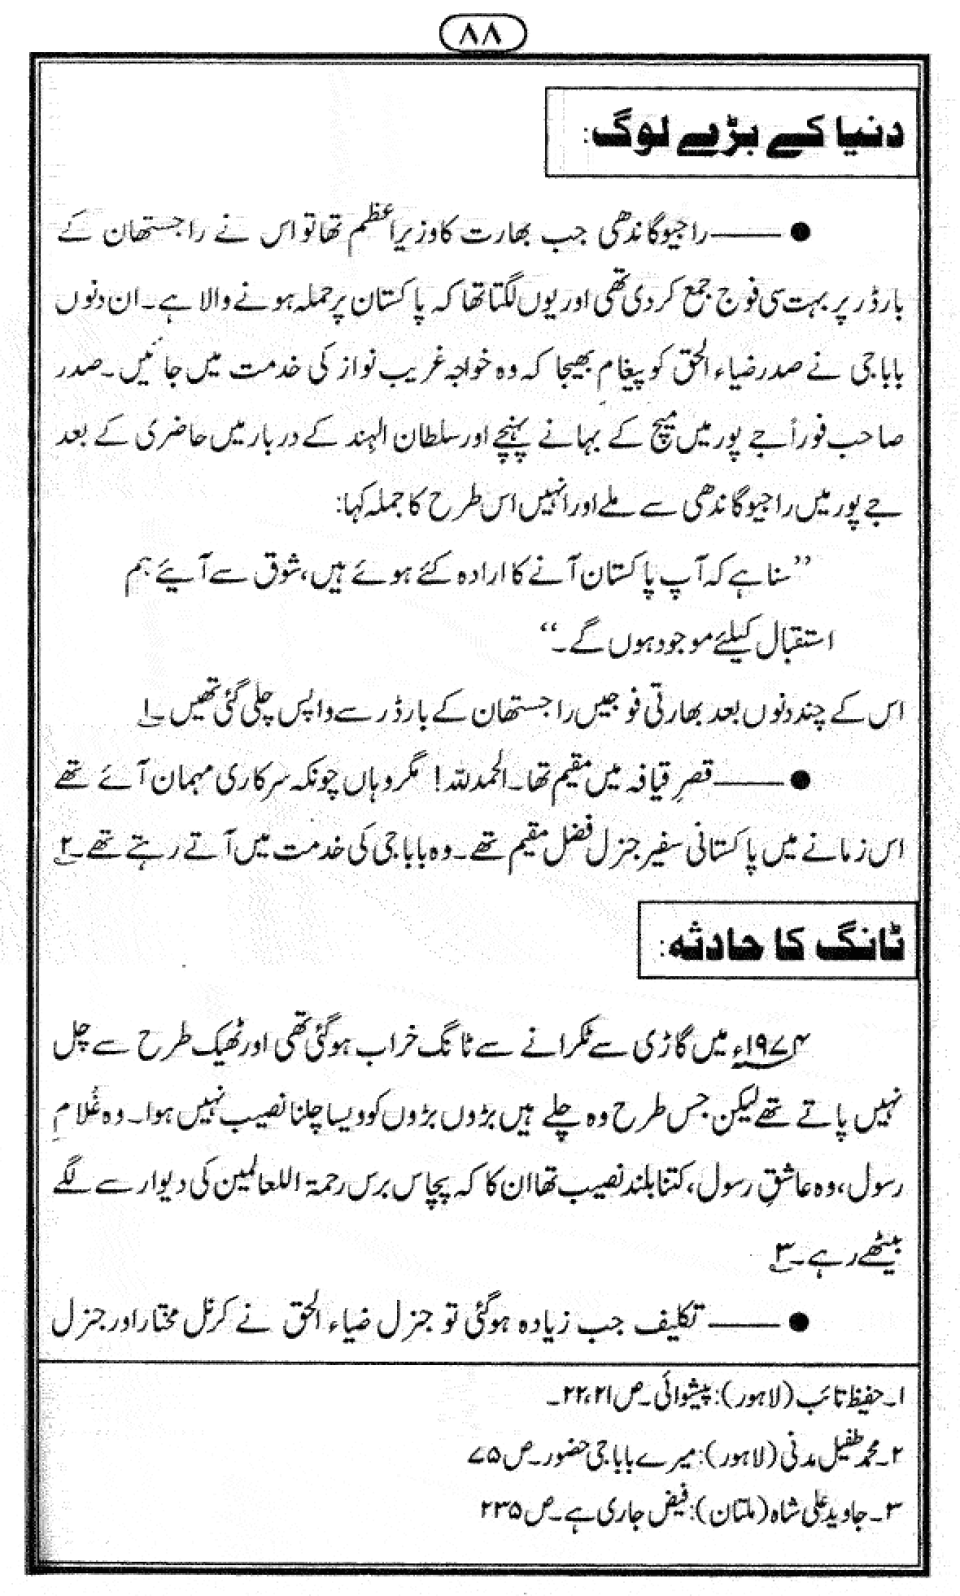 ۸۸
دنیا کے بڑے لوگ:
●——راجیو گاندھی جب بھارت کا وزیراعظم تھا تو اس نے راجستھان کے
بارڈر پر بہت سی فوج جمع کر دی تھی اور یوں لگتا تھا کہ پاکستان پر حملہ ہونے والا ہے۔ ان دنوں
باباجی نے صدر ضیاء الحق کو پیغام بھیجا کہ وہ خواجہ غریب نواز کی خدمت میں جائیں۔ صدر
صاحب فوراً جے پور میں میچ کے بہانے پہنچے اور سلطان الہند کے دربار میں حاضری کے بعد
جے پور میں راجیو گاندھی سے ملے اور انہیں اس طرح کا جملہ کہا:
’’سنا ہے کہ آپ پاکستان آنے کا ارادہ کئے ہوئے ہیں، شوق سے آیئے ہم
استقبال کیلئے موجود ہوں گے۔‘‘
اس کے چند دنوں بعد بھارتی فوجیں راجستھان کے بارڈر سے واپس چلی گئی تھیں۔۱
●——قصرِ قیافہ میں مقیم تھا۔ الحمدللہ! مگر وہاں چونکہ سرکاری مہمان آئے تھے
اس زمانے میں پاکستانی سفیر جنرل فضل مقیم تھے۔ وہ باباجی کی خدمت میں آتے رہتے تھے۔۲
ٹانگ کا حادثہ:
۱۹۷۴ء میں گاڑی سے ٹکرانے سے ٹانگ خراب ہوگئی تھی اور ٹھیک طرح سے چل
نہیں پاتے تھے لیکن جس طرح وہ چلے ہیں بڑوں بڑوں کو ویسا چلنا نصیب نہیں ہوا۔ وہ غُلامِ
رسول، وہ عاشقِ رسول، کتنا بلند نصیب تھا ان کا کہ پچاس برس رحمۃ اللعالمین کی دیوار سے لگے
بیٹھے رہے۔۳
●——تکلیف جب زیادہ ہوگئی تو جنرل ضیاء الحق نے کرنل مختار اور جنرل
۱۔ حفیظ تائب (لاہور): پیشوائی۔ ص ۲۱، ۲۲۔
۲۔ محمد طفیل مدنی (لاہور): میرے باباجی حضور۔ ص ۷۵
۳۔ جاوید علی شاہ (ملتان): فیض جاری ہے۔ ص ۲۳۵